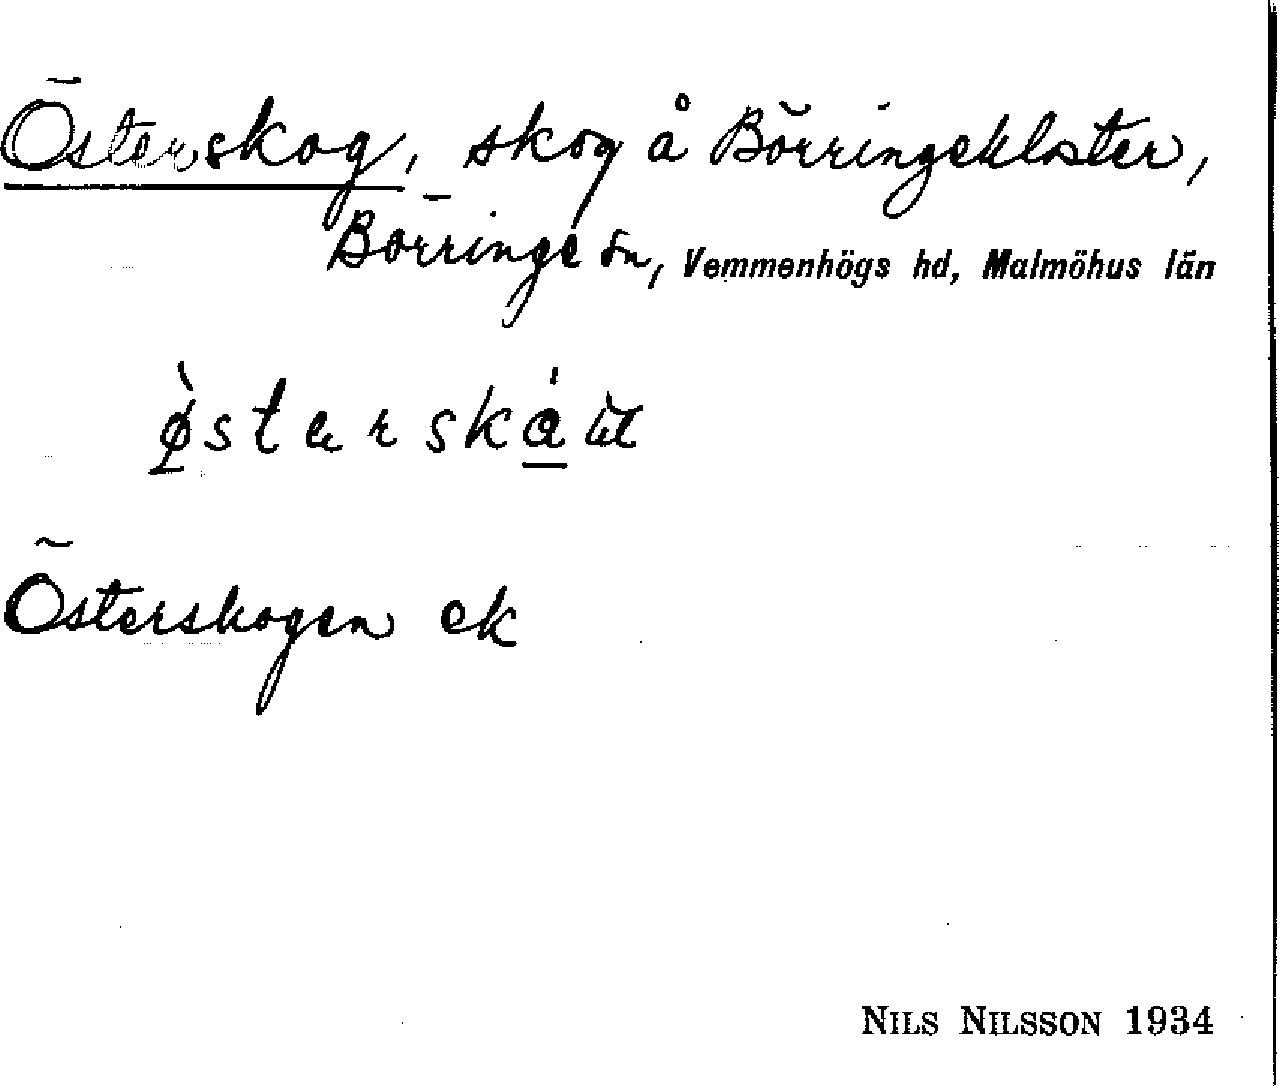 Österskog, skog å Börringekloster,
Börringe sn, Vemmenhögs hd, Malmöhus län
Österskogen ek
NILS NILSSON 1934